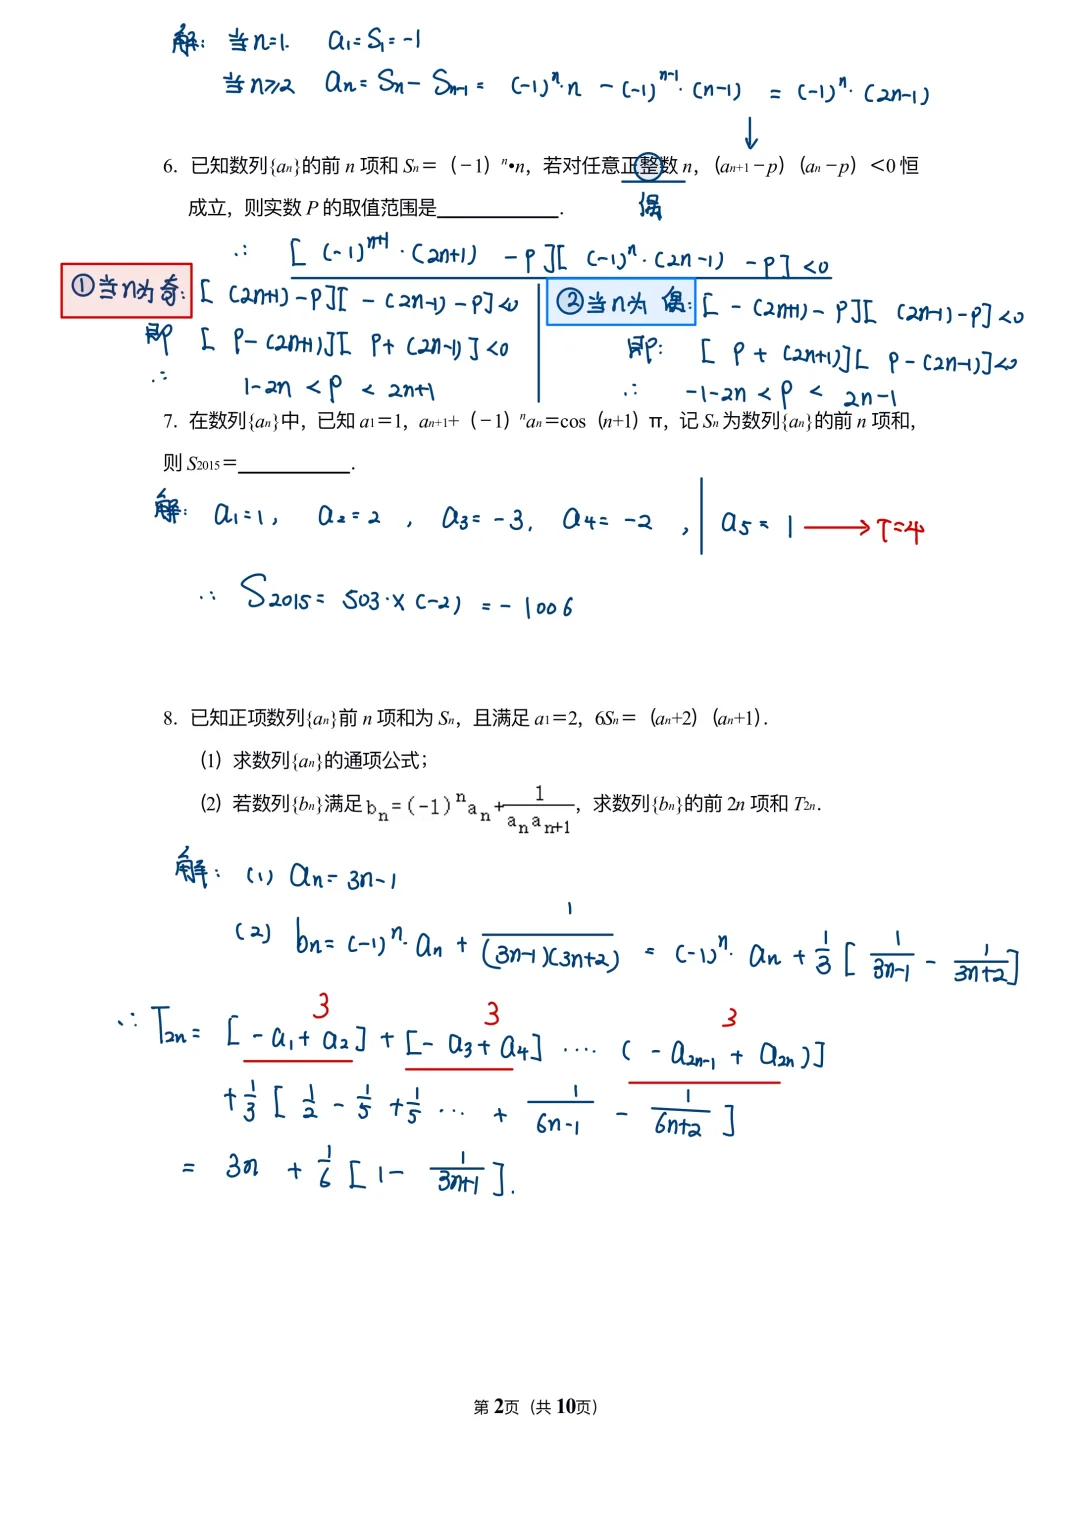 解：当n=1. a₁=S₁=-1
当n≥2 aₙ=Sₙ-Sₙ₋₁=(-1)ⁿ·n-(-1)ⁿ⁻¹·(n-1)=(-1)ⁿ·(2n-1)
6．已知数列{aₙ}的前 n 项和 Sₙ=（-1）ⁿ•n，若对任意正整数 n，（aₙ₊₁-p）（aₙ-p）<0 恒
成立，则实数 P 的取值范围是____________．
偶
∴ [(-1)ⁿ⁺¹·(2n+1)-p][(-1)ⁿ·(2n-1)-p]<0
①当n为奇: [(2n+1)-p][-(2n-1)-p]<0
即 [p-(2n+1)][p+(2n-1)]<0
∴ 1-2n<p<2n+1
②当n为偶: [-(2n+1)-p][(2n-1)-p]<0
即: [p+(2n+1)][p-(2n-1)]<0
∴ -1-2n<p<2n-1
7．在数列{aₙ}中，已知 a₁=1，aₙ₊₁+（-1）ⁿaₙ=cos（n+1）π，记 Sₙ 为数列{aₙ}的前 n 项和，
则 S₂₀₁₅=___________．
解: a₁=1, a₂=2, a₃=-3, a₄=-2, | a₅=1 → T=4
∴ S₂₀₁₅=503·×(-2)=-1006
8．已知正项数列{aₙ}前 n 项和为 Sₙ，且满足 a₁=2，6Sₙ=（aₙ+2）（aₙ+1）．
（1）求数列{aₙ}的通项公式；
（2）若数列{bₙ}满足bₙ=(-1)ⁿaₙ+1/(aₙaₙ₊₁)，求数列{bₙ}的前 2n 项和 T₂ₙ．
解: (1) aₙ=3n-1
(2) bₙ=(-1)ⁿ·aₙ+1/((3n-1)(3n+2))=(-1)ⁿ·aₙ+1/3[1/(3n-1)-1/(3n+2)]
3 3 3
∴ T₂ₙ=[-a₁+a₂]+[-a₃+a₄]····(-a₂ₙ₋₁+a₂ₙ)]
+1/3[1/2-1/5+1/5···+1/(6n-1)-1/(6n+2)]
=3n+1/6[1-1/(3n+1)].
第 2页（共 10页）